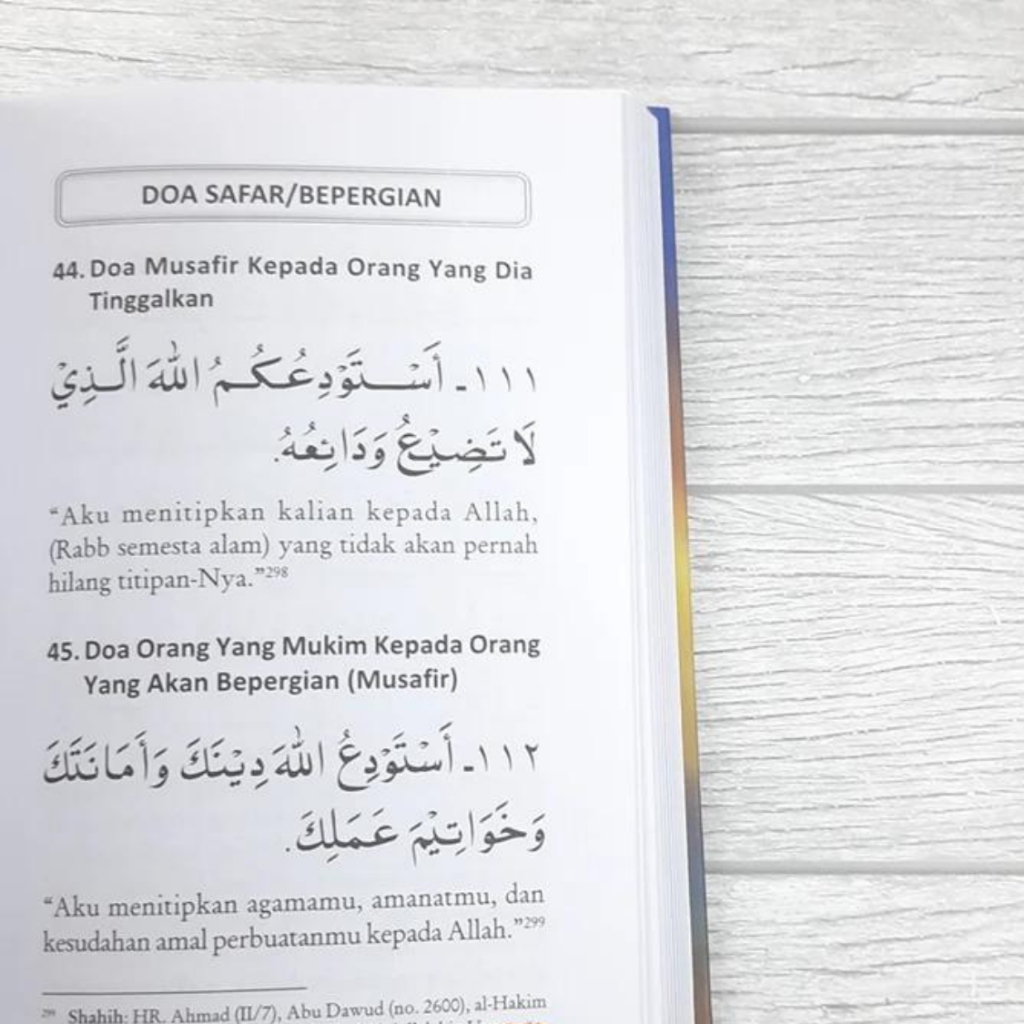 DOA SAFAR/BEPERGIAN
44. Doa Musafir Kepada Orang Yang Dia
Tinggalkan
١١١ـ أَسْتَوْدِعُكُمُ اللهَ الَّذِيْ
لَا تَضِيْعُ وَدَائِعُهُ.
“Aku menitipkan kalian kepada Allah,
(Rabb semesta alam) yang tidak akan pernah
hilang titipan-Nya.”298
45. Doa Orang Yang Mukim Kepada Orang
Yang Akan Bepergian (Musafir)
١١٢ـ أَسْتَوْدِعُ اللهَ دِيْنَكَ وَأَمَانَتَكَ
وَخَوَاتِيْمَ عَمَلِكَ.
“Aku menitipkan agamamu, amanatmu, dan
kesudahan amal perbuatanmu kepada Allah.”299
Shahih: HR. Ahmad (II/7), Abu Dawud (no. 2600), al-Hakim